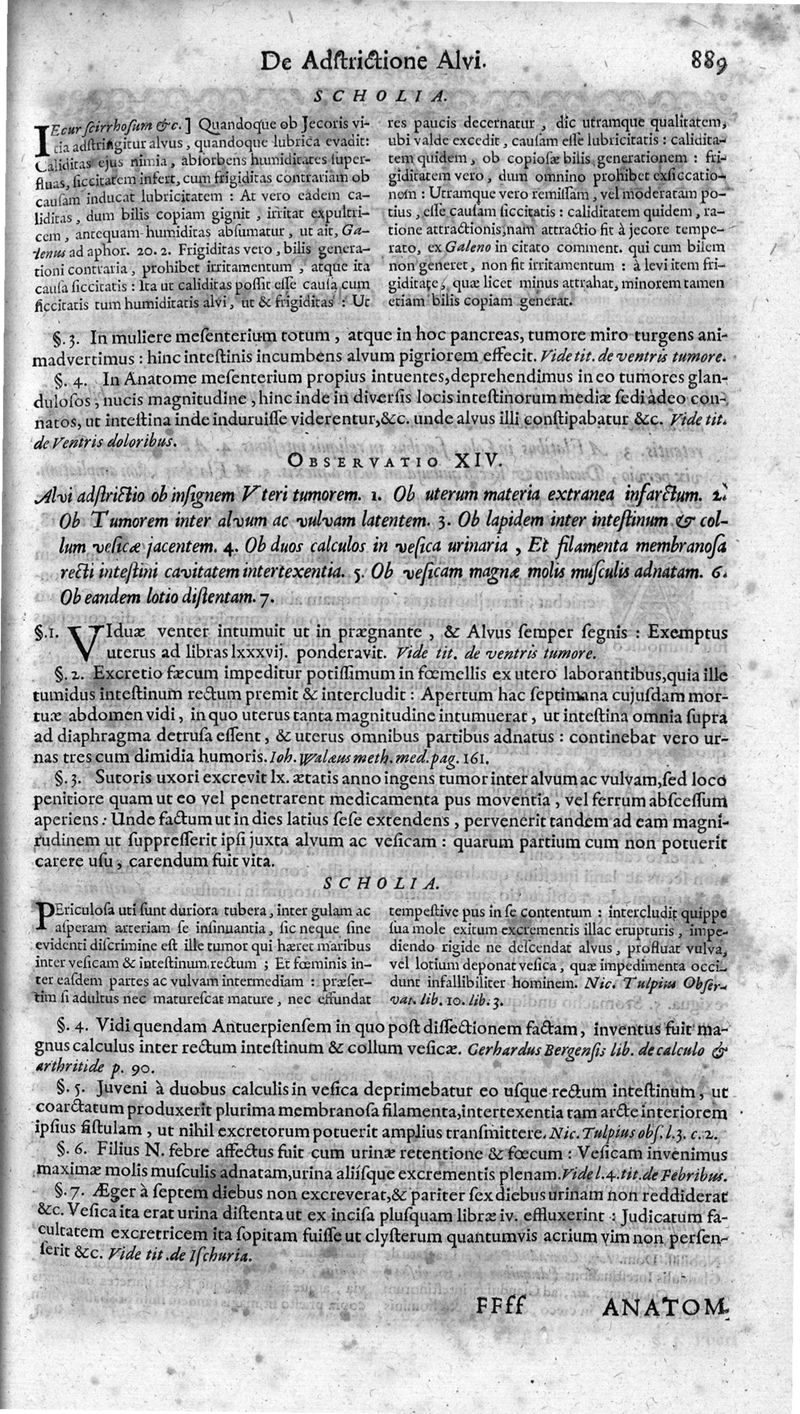 De Adſtrictione Alvi. 889
SCHOLIA.
IEcur ſcirrhoſum &c.] Quandoque ob Jecoris vi-
tia adſtringitur alvus, quandoque lubrica evadit:
Caliditas ejus nimia, abſorbens humiditates ſuper-
fluas, ſiccitatem infert, cum frigiditas contrariam ob
cauſam inducat lubricitatem : At vero eadem ca-
liditas, dum bilis copiam gignit, irritat expultri-
cem, antequam humiditas abſumatur, ut ait, Ga-
lenus ad aphor. 20. 2. Frigiditas vero, bilis genera-
tioni contraria, prohibet irritamentum, atque ita
cauſa ſiccitatis : Ita ut caliditas poſſit eſſe cauſa cum
ſiccitatis tum humiditatis alvi, ut & frigiditas : Ut
res paucis decernatur, dic utramque qualitatem,
ubi valde excedit, cauſam eſſe lubricitatis : calidita-
tem quidem, ob copioſæ bilis generationem : fri-
giditatem vero, dum omnino prohibet exſiccatio-
nem : Utramque vero remiſſam, vel moderatam po-
tius, eſſe cauſam ſiccitatis : caliditatem quidem, ra-
tione attractionis, nam attractio fit à jecore tempe-
rato, ex Galeno in citato comment. qui cum bilem
non generet, non fit irritamentum : à levi item fri-
giditate, quæ licet minus attrahat, minorem tamen
etiam bilis copiam generat.
§. 3. In muliere meſenterium totum, atque in hoc pancreas, tumore miro turgens ani-
madvertimus : hinc inteſtinis incumbens alvum pigriorem effecit. Vide tit. de ventris tumore.
§. 4. In Anatome meſenterium propius intuentes, deprehendimus in eo tumores glan-
duloſos, nucis magnitudine, hinc inde in diverſis locis inteſtinorum mediæ ſedi adeo con-
natos, ut inteſtina inde induruiſſe viderentur, &c. unde alvus illi conſtipabatur &c. Vide tit.
de Ventris doloribus.
OBSERVATIO XIV.
Alvi adſtrictio ob inſignem Uteri tumorem. 1. Ob uterum materia extranea infarctum. 2.
Ob Tumorem inter alvum ac vulvam latentem. 3. Ob lapidem inter inteſtinum & col-
lum veſicæ jacentem. 4. Ob duos calculos in veſica urinaria, Et filamenta membranoſa
recti inteſtini cavitatem intertexentia. 5. Ob veſicam magnæ molis muſculis adnatam. 6.
Ob eandem lotio diſtentam. 7.
§. 1. VIduæ venter intumuit ut in prægnante, & Alvus ſemper ſegnis : Exemptus
uterus ad libras lxxxvij. ponderavit. Vide tit. de ventris tumore.
§. 2. Excretio fæcum impeditur potiſſimum in fœmellis ex utero laborantibus, quia ille
tumidus inteſtinum rectum premit & intercludit : Apertum hac ſeptimana cujuſdam mor-
tuæ abdomen vidi, in quo uterus tanta magnitudine intumuerat, ut inteſtina omnia ſupra
ad diaphragma detruſa eſſent, & uterus omnibus partibus adnatus : continebat vero ur-
nas tres cum dimidia humoris. Ioh. Walæus meth. med. pag. 161.
§. 3. Sutoris uxori excrevit lx. ætatis anno ingens tumor inter alvum ac vulvam, ſed loco
penitiore quam ut eo vel penetrarent medicamenta pus moventia, vel ferrum abſceſſum
aperiens : Unde factum ut in dies latius ſeſe extendens, pervenerit tandem ad eam magni-
tudinem ut ſuppreſſerit ipſi juxta alvum ac veſicam : quarum partium cum non potuerit
carere uſu, carendum fuit vita.
SCHOLIA.
PEriculoſa uti ſunt duriora tubera, inter gulam ac
aſperam arteriam ſe inſinuantia, ſic neque ſine
evidenti diſcrimine eſt ille tumor qui hæret maribus
inter veſicam & inteſtinum rectum ; Et fœminis in-
ter eaſdem partes ac vulvam intermediam : præſer-
tim ſi adultus nec matureſcat mature, nec effundat
tempeſtive pus in ſe contentum : intercludit quippe
ſua mole exitum excrementis illac erupturis, impe-
diendo rigide ne deſcendat alvus, profluat vulva,
vel lotium deponat veſica, quæ impedimenta occi-
dunt infallibiliter hominem. Nic. Tulpius Obſer-
vat. lib. 10. lib. 3.
§. 4. Vidi quendam Antuerpienſem in quo poſt diſſectionem factam, inventus fuit ma-
gnus calculus inter rectum inteſtinum & collum veſicæ. Gerhardus Bergenſis lib. de calculo &
arthritide p. 90.
§. 5. Juveni à duobus calculis in veſica deprimebatur eo uſque rectum inteſtinum, ut
coarctatum produxerit plurima membranoſa filamenta, intertexentia tam arcte interiorem
ipſius fiſtulam, ut nihil excretorum potuerit amplius tranſmittere. Nic. Tulpius obſ. l. 3. c. 2.
§. 6. Filius N. febre affectus fuit cum urinæ retentione & fœcum : Veſicam invenimus
maximæ molis muſculis adnatam, urina aliiſque excrementis plenam. Vide l. 4. tit. de Febribus.
§. 7. Æger à ſeptem diebus non excreverat, & pariter ſex diebus urinam non reddiderat
&c. Veſica ita erat urina diſtenta ut ex inciſa pluſquam libræ iv. effluxerint : Judicatum fa-
cultatem excretricem ita ſopitam fuiſſe ut clyſterum quantumvis acrium vim non perſen-
ſerit &c. Vide tit. de Iſchuria.
FFff ANATOM.